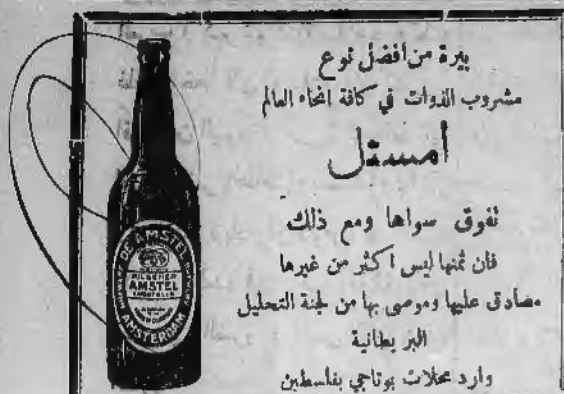 بيرة من أفضل نوع
مشروب الذوات في كافة انحاء العالم
أمستل
تفوق سواها ومع ذلك
فان ثمنها ليس اكثر من غيرها
مصادق عليها وموصى بها من لجنة التحليل
البريطانية
وارد محلات بوتاجي بفلسطين
DE AMSTEL
PILSENER
AMSTEL
AMSTERDAM